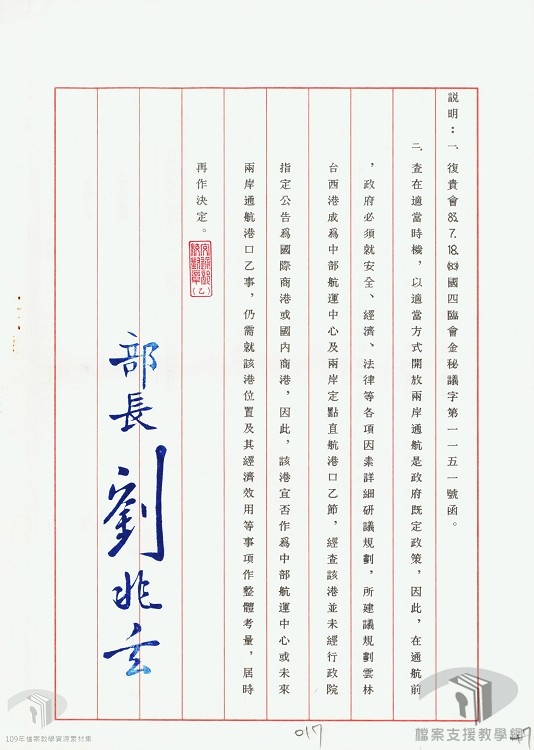 說明：一、復貴會83.7.18.(83)國四臨會金秘議字第一一五一號函。
二、查在適當時機，以適當方式開放兩岸通航是政府既定政策，因此，在通航前
，政府必須就安全、經濟、法律等各項因素詳細研議規劃，所建議規劃雲林
台西港成爲中部航運中心及兩岸定點直航港口乙節，經查該港並未經行政院
指定公告爲國際商港或國內商港，因此，該港宜否作爲中部航運中心或未來
兩岸通航港口乙事，仍需就該港位置及其經濟效用等事項作整體考量，居時
再作決定。
(乙)
部長 劉兆玄
017
109年檔案教學資源素材集
檔案支援教學網